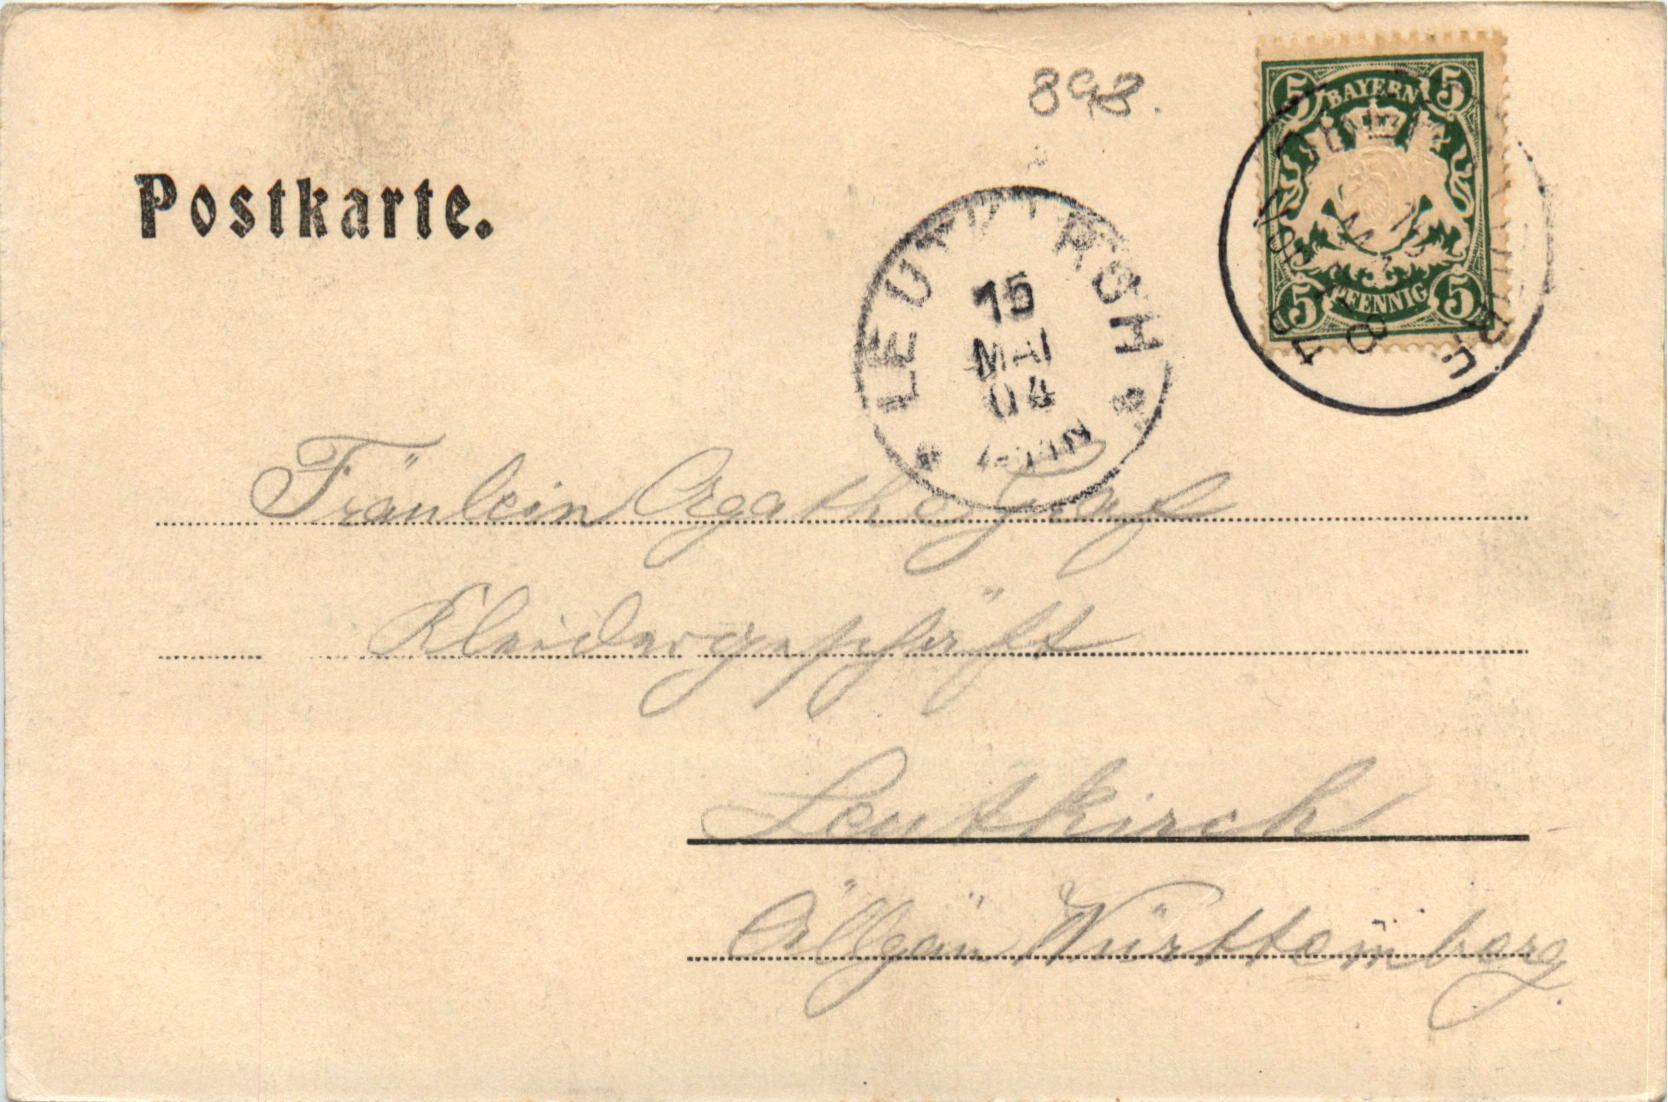 898.
5 BAYERN 5
5 PFENNIG 5
Postkarte.
LEUTKIRCH
15
MAI
04
Fräulein Agathe Graf
Kleidergeschäft
Leutkirch
Allgäu Württemberg